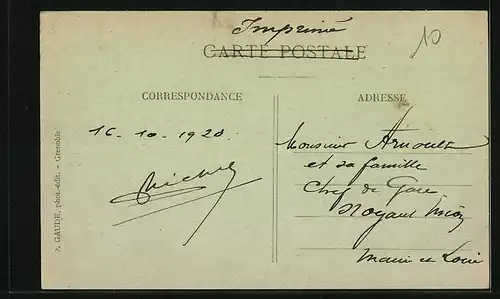 Imprimé
CARTE POSTALE
10
CORRESPONDANCE
ADRESSE
16-10-1920.
Michel
Monsieur Arnoult
et sa famille
Chef de Gare
Noyant
Maine et Loire
P. GAUDE, phot.-édit. - Grenoble